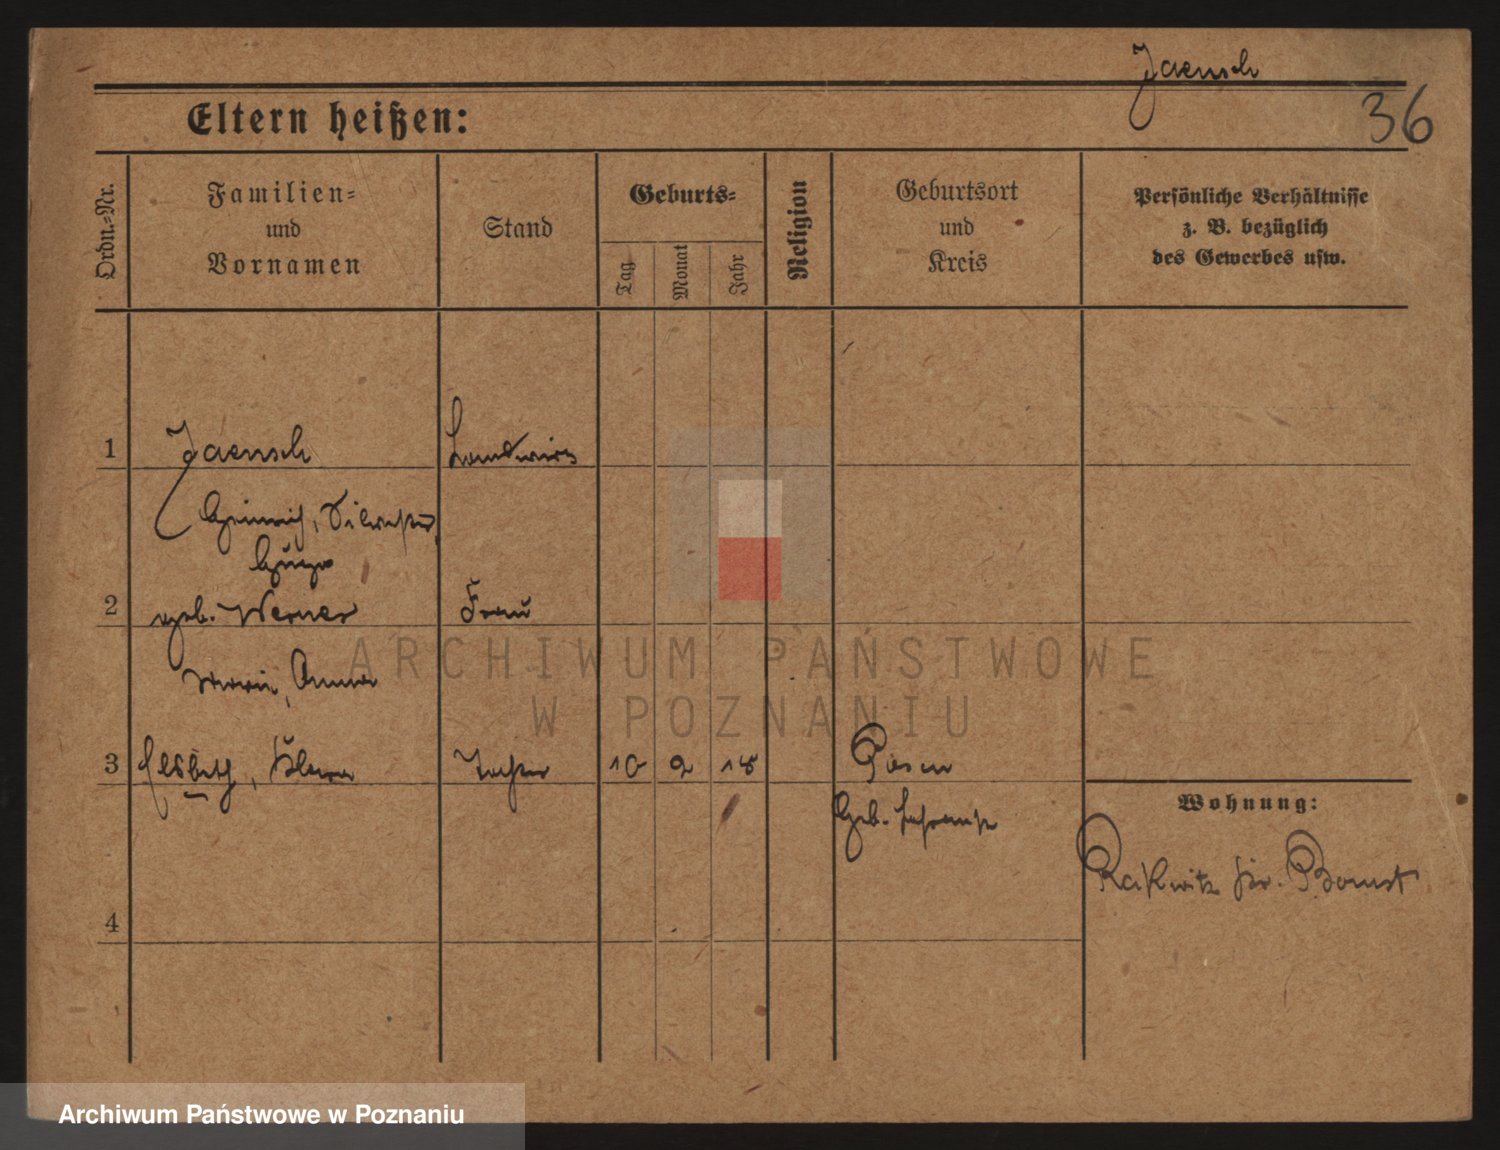 Jaensch
36
Eltern heißen:
Ordn.-Nr.
Familien-
und
Vornamen
Stand
Geburts-
Tag
Monat
Jahr
Religion
Geburtsort
und
Kreis
Persönliche Verhältnisse
z. B. bezüglich
des Gewerbes usw.
1 Jaensch Landwirt
Heinrich, Silvester,
Hugo
2 geb. Werner Frau
Maria, Anna
3 Elsbeth, Klara Tochter 10 2 18 Posen
Geb.
Wohnung:
Rakwitz Kr. Bomst
4
ARCHIWUM PAŃSTWOWE
W POZNANIU
Archiwum Państwowe w Poznaniu